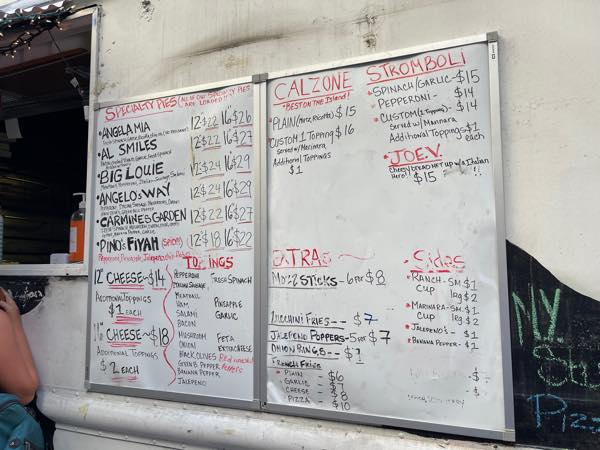 SPECIALTY PIES (ALL OF OUR SPECIALTY PIES ARE LOADED!!
•ANGELA MIA 12"$22 16"$26
•AL SMILES 12"$22 16"$29
•BIG LOUIE 12"$24 16"$29
•ANGELO'S WAY 12"$24 16"$29
•CARMINE'S GARDEN 12"$22 16"$27
•PINO'S FIYAH (SPICY) 12"$18 16"$22
TOPPINGS
12" CHEESE-$14
ADDITIONAL TOPPINGS
$1 EACH
CHEESE-$18
ADDITIONAL TOPPINGS
$2 EACH
PEPPERONI
ITALIAN SAUSAGE
MEATBALL
HAM
SALAMI
BACON
MUSHROOM
ONION
BLACK OLIVES
GREEN B. PEPPER
BANANA PEPPER
JALEPENO
FRESH SPINACH
PINEAPPLE
GARLIC
FETA
EXTRA CHEESE
CALZONE
"BEST ON THE Island!
•PLAIN (Mozz, Ricotta) $15
•CUSTOM 1 Topping $16
Served w/ Marinara
Additional Toppings
$1
STROMBOLI
•SPINACH/GARLIC-$15
•PEPPERONI- $14
•CUSTOM (1 Topping)- $14
Served w/ Marinara
Additional Toppings-$1 each
•JOEY
Hero! $15
EXTRAS
MOZZ STICKS- 6 for $8
ZUCCHINI FRIES--- $7
JALEPENO POPPERS- $7
ONION RINGS-- $7
FRENCH FRIES
• PLAIN - $6
• GARLIC - $8
• CHEESE - $8
• PIZZA - $10
Sides
• RANCH- SM $1
Cup lrg $2
• MARINARA- SM $1
Cup lrg $2
• JALEPENO'S- $1
• BANANA PEPPER- $1
NY